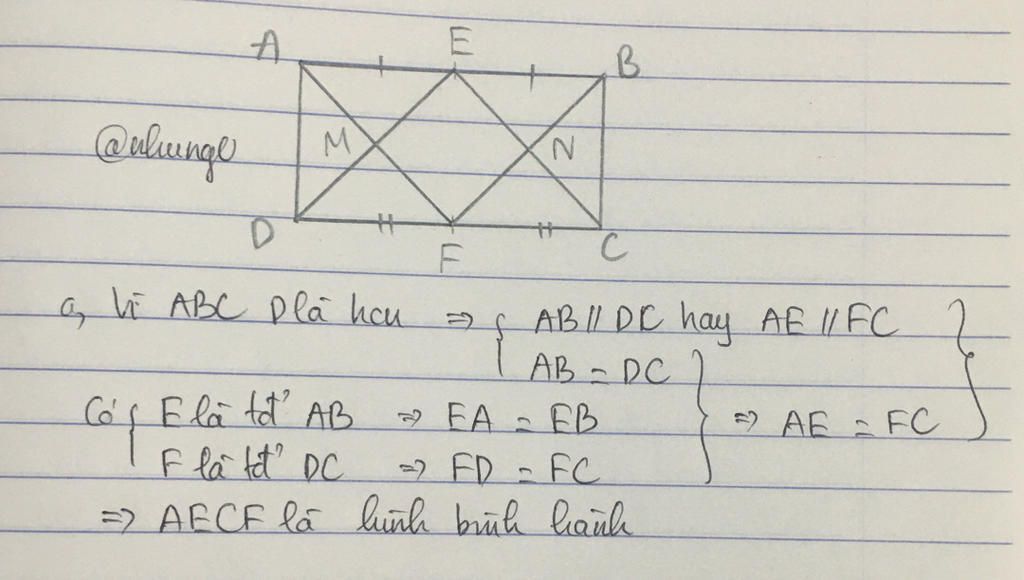 A E B
@nhunge M N
D F C
a, Vì ABC D là hcn => { AB // DC hay AE // FC }
AB = DC }
Có { E là tđ' AB => EA = EB => AE = FC
F là tđ' DC => FD = FC
=> AECF là hình bình hành